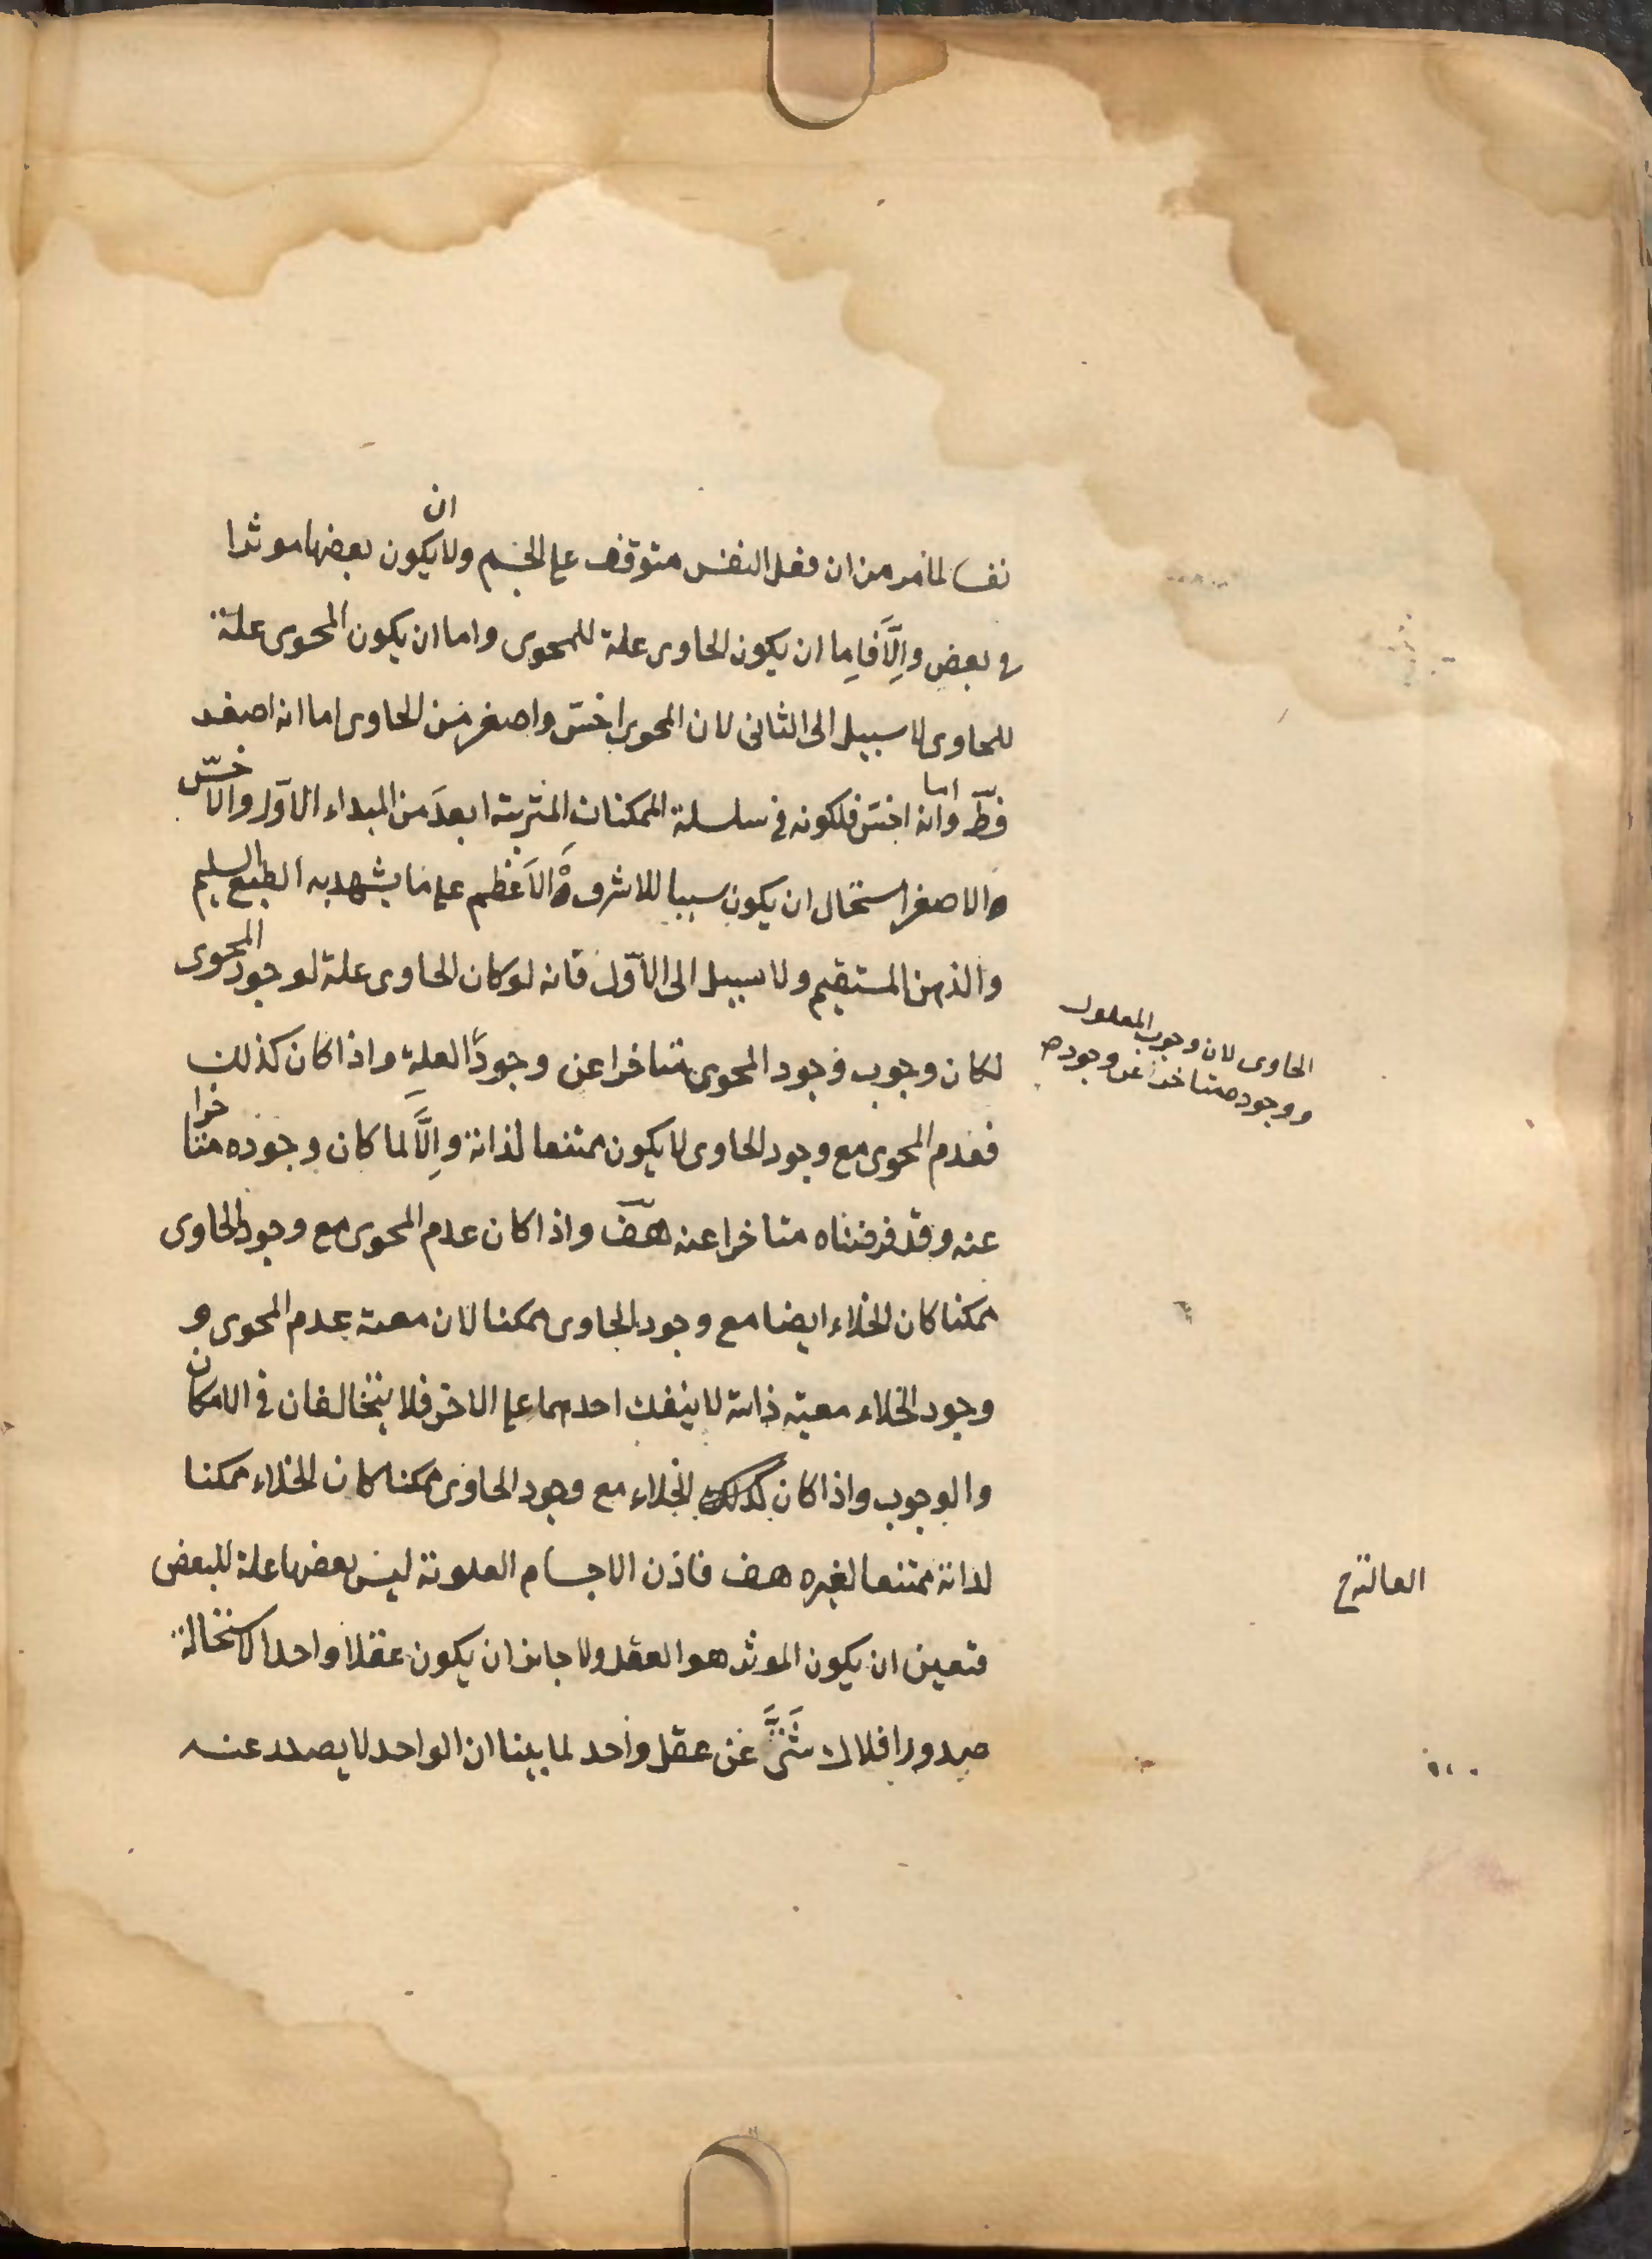 نفسا لما مر من ان فعل النفس متوقف على الجسم ولا ان يكون بعضها موثرا
فى بعض والَّا فاما ان يكون الحاوى علة للمحوى واما ان يكون المحوى علة
للحاوى لا سبيل الى الثانى لان المحوى اخسّ واصغر من الحاوى اما انه اصغر
فظّ واما انه اخسّ فلكونه فى سلسلة الممكنات المترتبة ابعد من المبداء الاوّل والاخسّ
والاصغر استحال ان يكون سببا للاشرف والاعظم على ما يشهد به الطبع السليم
والذهن المستقيم ولا سبيل الى الاوّل فانه لو كان الحاوى علة لوجود المحوى
لكان وجوب وجود المحوى متاخرا عن وجود العلة واذا كان كذلك
فعدم المحوى مع وجود الحاوى لا يكون ممتنعا لذاته والَّا لما كان وجوده متاخرا
عنه وقد فرضناه متاخرا عنه هف واذا كان عدم المحوى مع وجود الحاوى
ممكنا كان الخلاء ايضا مع وجود الحاوى ممكنا لان معية عدم المحوى و
وجود الخلاء معية ذاتية لا ينفك احدهما على الاخر فلا يتخالفان فى الامكان
والوجوب واذا كان كذلك الخلاء مع وجود الحاوى ممكنا كان الخلاء ممكنا
لذاته ممتنعا لغيره هف فاذن الاجسام العلوية ليس بعضها علة للبعض
فتعين ان يكون الموثر هو العقل ولا جايز ان يكون عقلا واحدا لاستحالة
صدور افلاك شتّى عن عقل واحد لما بينا ان الواحد لا يصدر عنه
الحاوى لان وجوب المعلول
ووجوده متاخر عن وجود